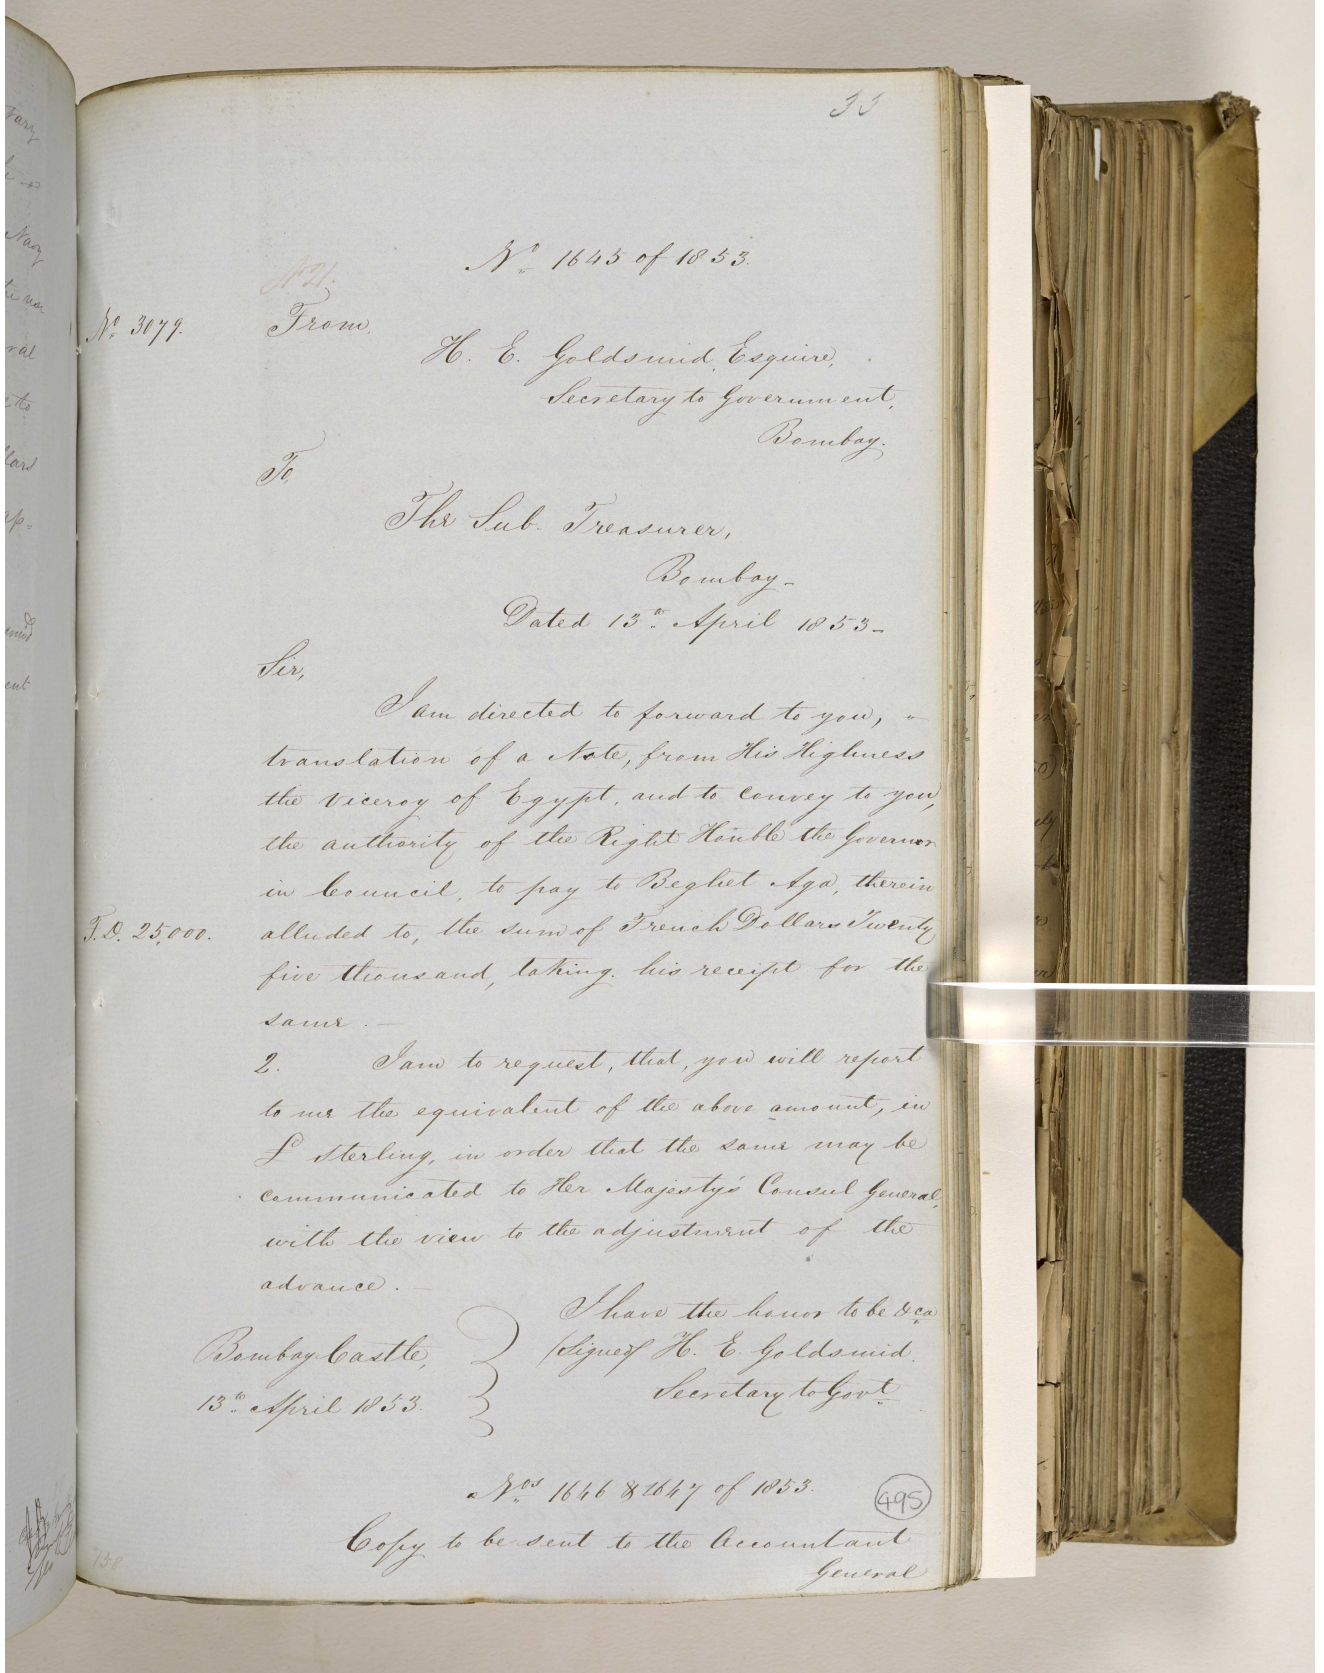 33
No. 1645 of 1853.
No. 3079.
From
H. E. Goldsmid, Esquire,
Secretary to Government,
Bombay.
To
The Sub. Treasurer,
Bombay-
Dated 13th April 1853-
Sir,
I am directed to forward to you,
translation of a Note, from His Highness
the Viceroy of Egypt, and to convey to you,
the authority of the Right Honble the Governor
in Council, to pay to Beghet Aga, therein
F.D. 25,000.
alluded to, the sum of French Dollars Twenty
five thousand, taking his receipt for the
same. -
2. I am to request, that, you will report
to me the equivalent of the above amount, in
£ sterling, in order that the same may be
communicated to Her Majesty's Consul General,
with the view to the adjustment of the
advance. -
I have the honor to be &ca
(Signed) H. E. Goldsmid.
Secretary to Govt.
Bombay Castle,
13th April 1853.
Nos. 1646 & 1647 of 1853.
495
Copy to be sent to the Accountant
General